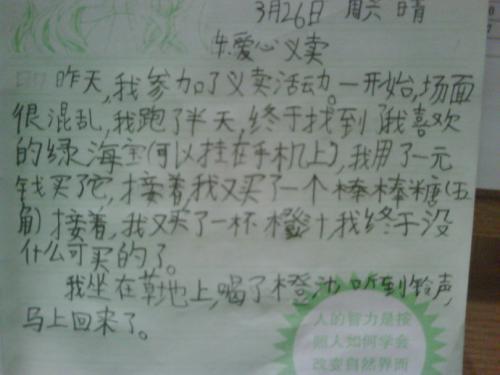 3月26日 周六 晴
牛.爱心义卖
昨天,我参加了义卖活动。一开始,场面
很混乱,我跑了半天,终于找到了我喜欢
的绿海宝(可以挂在手机上),我用了一元
钱买了它,接着,我又买了一个棒棒糖(五
角)接着,我又买了一杯橙汁,我终于没
什么可买的了。
我坐在草地上,喝了橙汁,听到铃声,
马上回来了。
人的智力是按
照人如何学会
改变自然界而